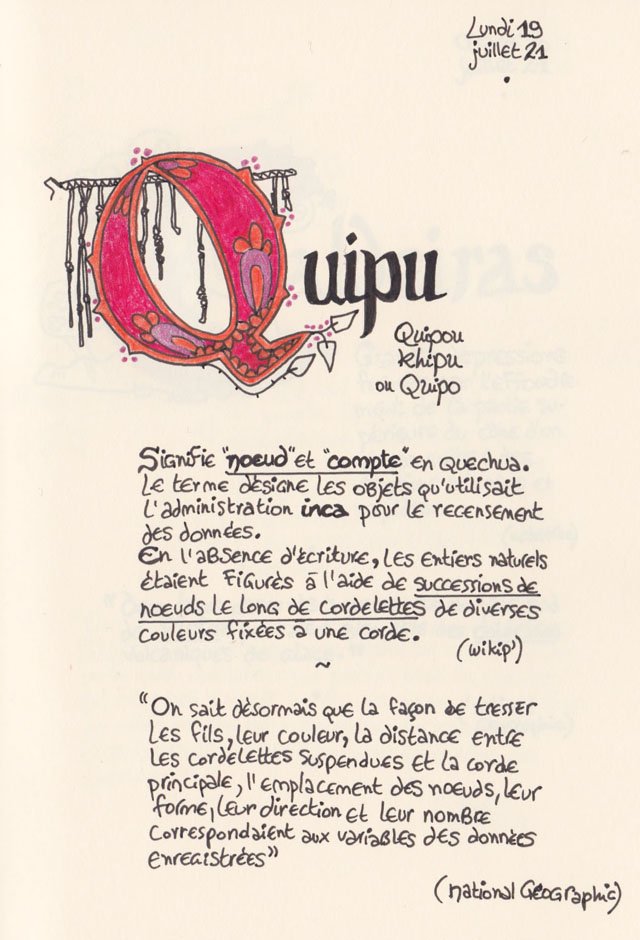 Lundi 19
juillet 21
Quipu
Quipou
Khipu
ou Quipo
Signifie "noeud" et "compte" en Quechua.
Le terme désigne les objets qu'utilisait
l'administration inca pour le recensement
des données.
En l'absence d'écriture, les entiers naturels
étaient figurés à l'aide de successions de
noeuds le long de cordelettes de diverses
couleurs fixées à une corde.
(wikip')
~
"On sait désormais que la façon de tresser
les fils, leur couleur, la distance entre
les cordelettes suspendues et la corde
principale, l'emplacement des noeuds, leur
forme, leur direction et leur nombre
correspondaient aux variables des données
enregistrées"
(National Géographic)